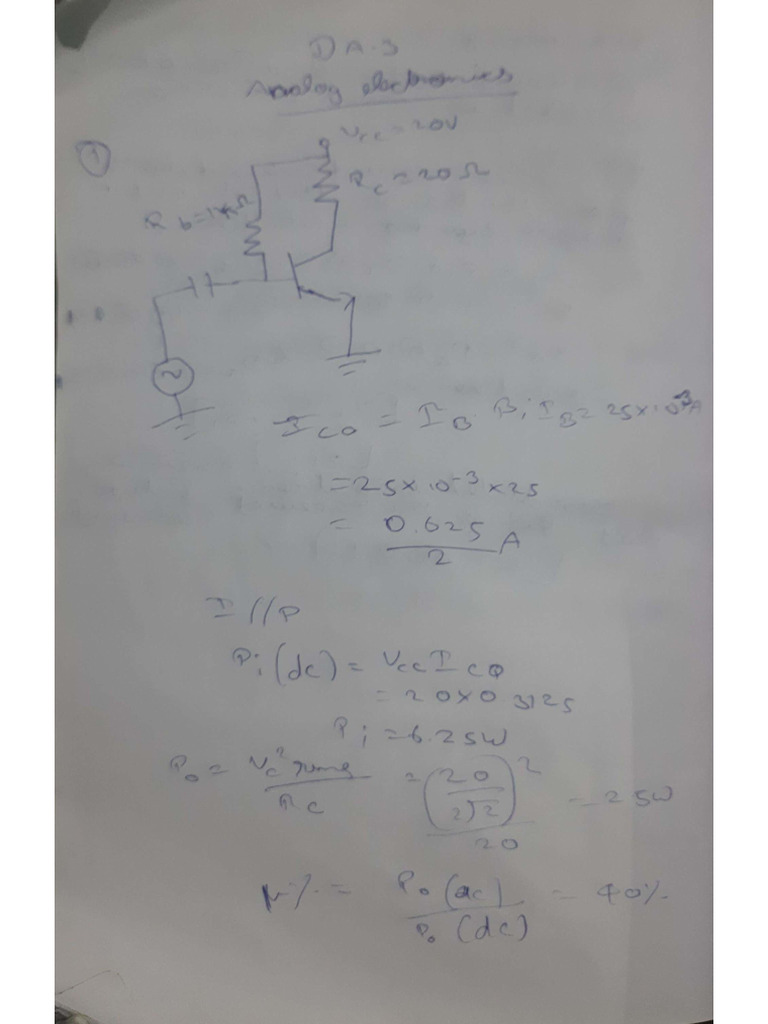 D A-3
Analog electronics
①
Vcc = 20V
Rc = 20Ω
Rb = 1kΩ
~
ICQ = IB β; IB = 25×10-3A
= 25×10-3×25
= 0.625/2 A
I//P
Pi(dc) = Vcc ICQ
= 20×0 3125
Pi = 6.25W
Po = Vc2 rms/Rc = (20/2√2)2/20 = 2 5W
% = Po(ac)/Po(dc) = 40%